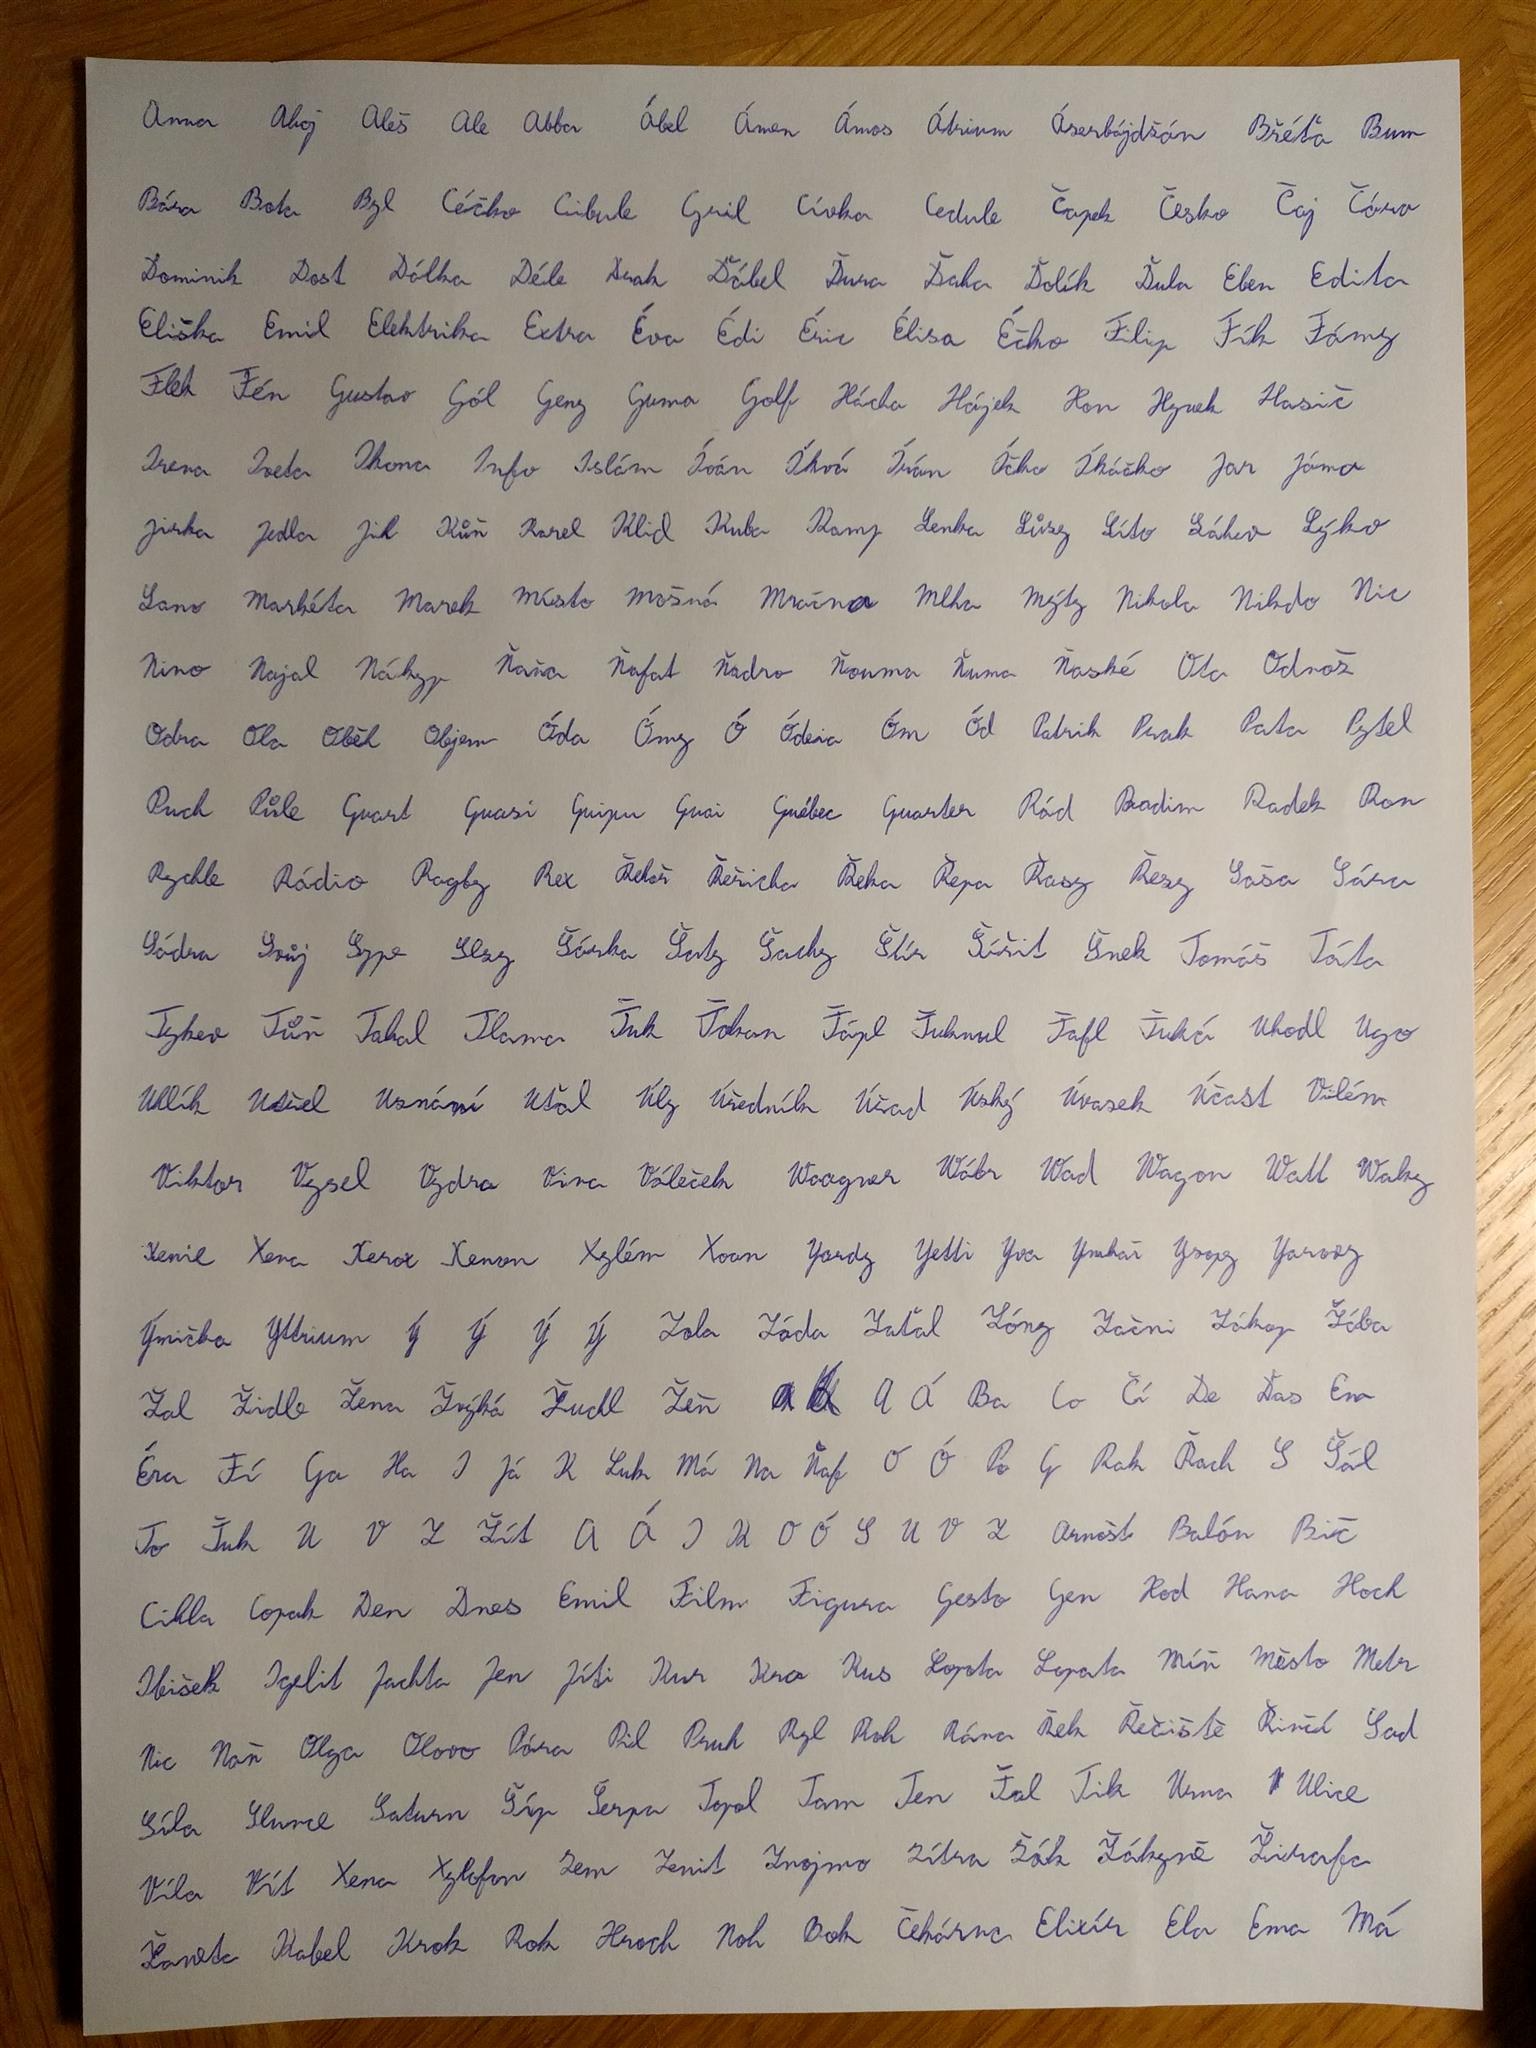 Anna Ahoj Aleš Ale Abba Ábel Ámen Ámos Átrium Ázerbájdžán Břéťa Bum
Bára Bota Byl Céčko Cibule Cyril Cívka Cedule Čapek Česko Čaj Čára
Dominik Dost Dálka Déle Drak Ďábel Ďura Ďaha Ďolík Ďula Eben Edita
Eliška Emil Elektrika Extra Éva Édi Éric Élisa Éčko Filip Fík Fámy
Flek Fén Gustav Gól Geny Guma Golf Hácha Hájek Hon Hynek Hasič
Irena Iveta Ikona Info Islám Íván Íkvá Írán Íčko Íkáčko Jar Jáma
Jirka Jedla Jih Kůň Karel Klid Kuba Kamp Lenka Lůzy Líto Láhev Lýko
Lano Markéta Marek Místo Možná Mračna Mlha Mýty Nikola Nikdo Nic
Nino Najal Nákyp Ňaňa Ňafat Ňadro Ňouma Ňuma Ňaské Ota Odnož
Odra Ola Oběh Objem Óda Ómy Ó Óděvia Óm Ód Patrik Prak Pata Pytel
Puch Půle Quart Quasi Quipu Quai Québec Quarter Rád Radim Radek Ron
Rychle Rádio Ragby Rex Řehoř Řeřicha Řeka Řepa Řasy Řezy Saša Sára
Sádra Svůj Sype Slzy Šárka Šaty Šachy Šlír Šířit Šnek Tomáš Táta
Tykev Tůň Tahal Tlama Ťuk Ťokan Ťápl Ťuknul Ťafl Ťuká Uhodl Ugo
Uhlík Utřel Uznání Uťal Úly Úředník Úřad Úzký Úvazek Účast Vilém
Viktor Vysel Vydra Vina Váleček Waagner Wábr Wad Wagon Watt Walky
Xenie Xena Xerox Xenon Xylém Xoan Yardy Yetti Yva Ymkař Ysopy Yarovy
Ýmička Yttrium Ý Ý Ý Ý Zola Záda Zaťal Zóny Začni Zákop Žába
Žal Židle Žena Žvýká Žuchl Žeň A Á Ba Co Čí De Ďas Em
Éra Fí Ga Ha I Já K Luk Má Na Ňaf O Ó Po Q Rak Řach S Šál
To Ťuk U V Z Žít A Á I K O Ó S U V Z Arnošt Balón Bič
Cihla Copak Den Dnes Emil Film Figura Gesto Gen Hod Hana Hoch
Ibišek Igelit Jachta Jen Jíti Kur Kra Kus Lopota Lopata Míň Město Metr
Nic Naň Olga Olovo Pára Pil Pruh Ryl Roh Rána Řek Řečiště Řinčí Sad
Síla Slunce Saturn Šíp Šerpa Topol Tam Ten Ťal Tik Urna Ulice
Víla Vít Xena Xylofon Zem Zenit Znojmo Zítra Žák Žákyně Žirafa
Žaneta Kabel Krok Rok Hroch Noh Bok Čekárna Elixír Ela Ema Má